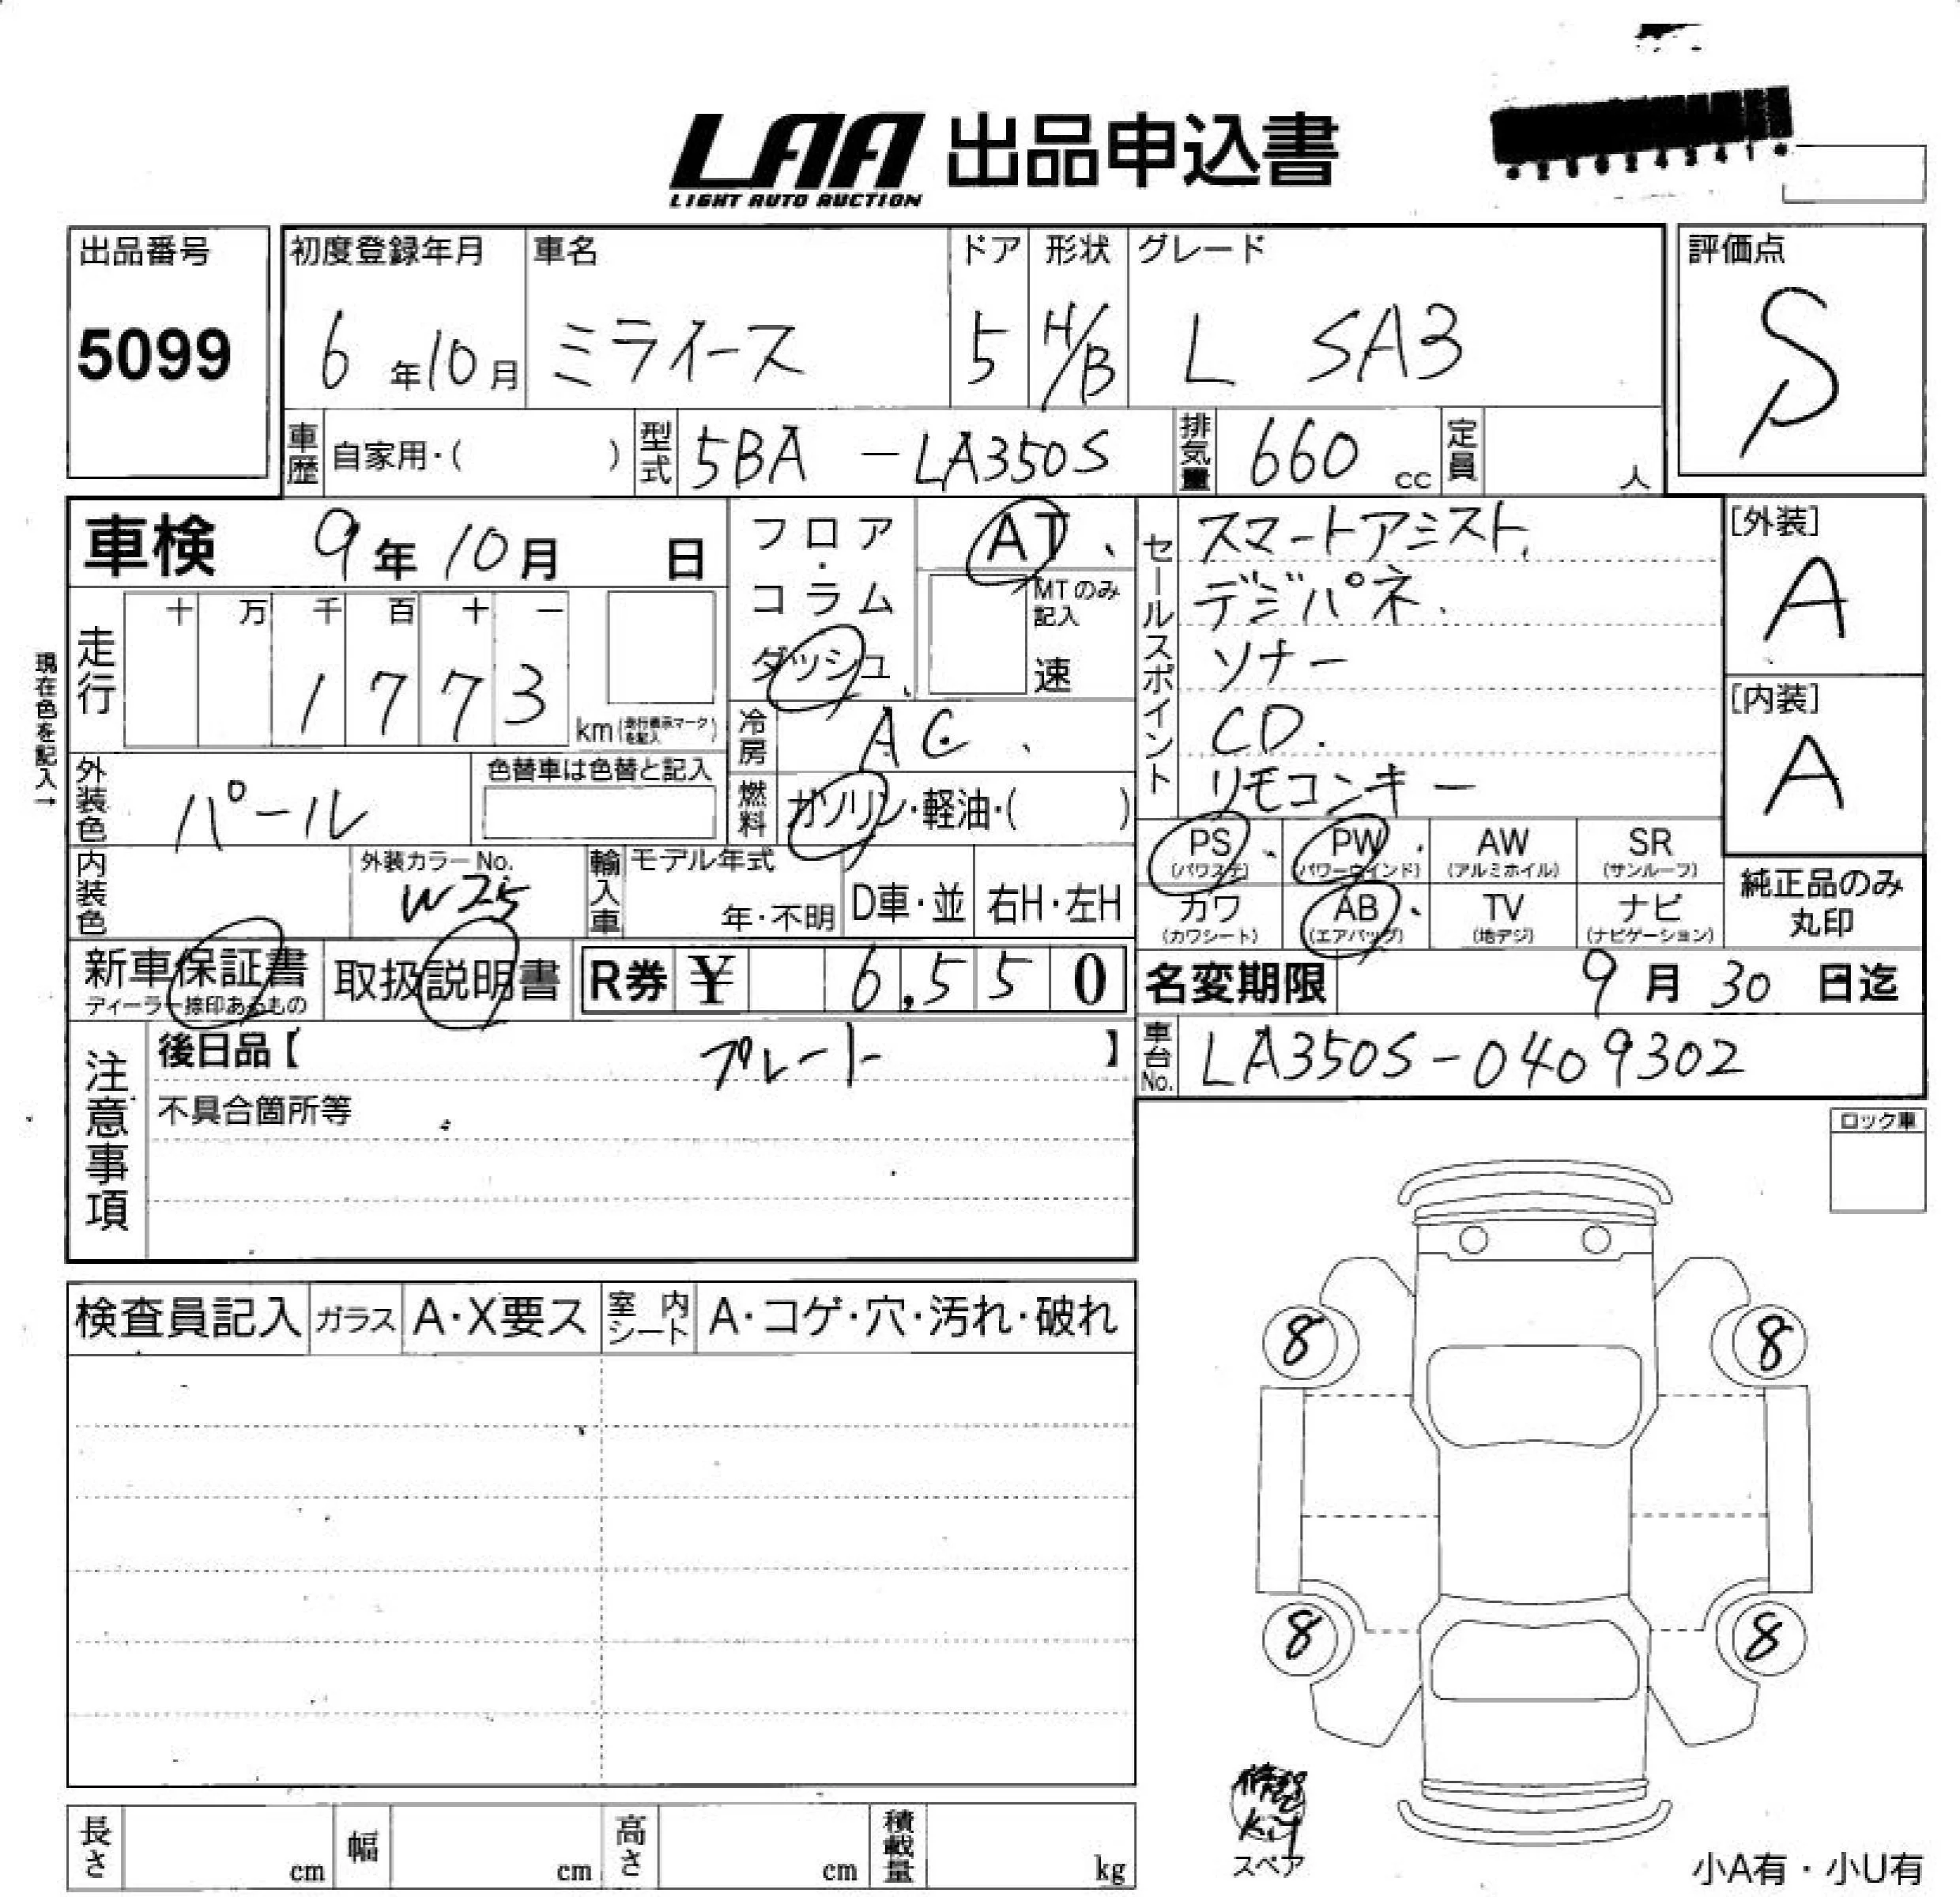 LAA 出品申込書
LIGHT AUTO AUCTION
出品番号
5099
初度登録年月
6年10月
車名
ミライース
ドア
5
形状
H/B
グレード
L SA3
評価点
S
車歴 自家用・( )
型式 5BA - LA350S
排気量 660 cc
定員 人
車検 9年10月 日
フロア・コラム ダッシュ
AT
MTのみ記入
速
走行
十 万 千 百 十 一
1 7 7 3
km(走行表示マークを記入)
現在色を記入→
冷房 AC
燃料 ガソリン・軽油・( )
外装色 パール
色替車は色替と記入
内装色
外装カラーNo.
W25
輸入車
モデル年式
年・不明
D車・並
右H・左H
セールスポイント
スマートアシスト
デジパネ
ソナー
CD
リモコンキー
[外装]
A
[内装]
A
PS (パワステ)
PW (パワーウインド)
AW (アルミホイル)
SR (サンルーフ)
カワ (カワシート)
AB (エアバッグ)
TV (地デジ)
ナビ (ナビゲーション)
純正品のみ
丸印
新車保証書
ディーラー捺印あるもの
取扱説明書
R券 ¥ 6,550
名変期限 9月30日迄
車台No. LA350S-0409302
注意事項
後日品【 プレート 】
不具合箇所等
ロック車
検査員記入
ガラス A・X要ス
室内シート A・コゲ・穴・汚れ・破れ
8 8
8 8
修理
Kit
スペア
長さ cm
幅 cm
高さ cm
積載量 kg
小A有・小U有